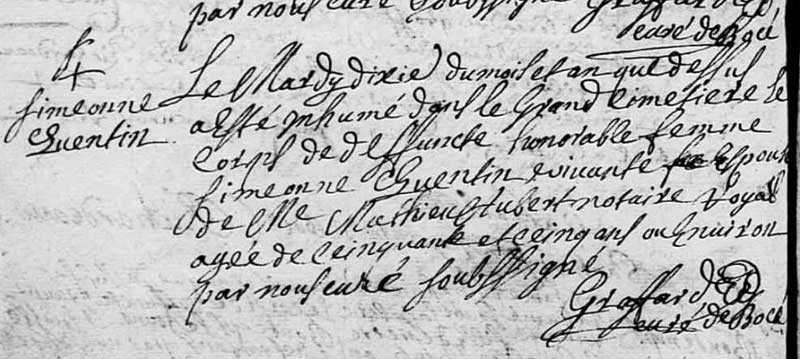 par nous curé soubssigné Graffard
curé de
simeonne
Quentin
Le Mardy dixie dumois et an que dessus
a esté Inhumé dans le Grand Cimetiere le
Corps de deffuncte honorable femme
Simeonne Quentin vivante espouse
de Me Mathieu hubert notaire Royal
agée de Ceinquante et Ceinq ans ou Environ
par nous curé soubssigné
Graffard
curé de Bocé